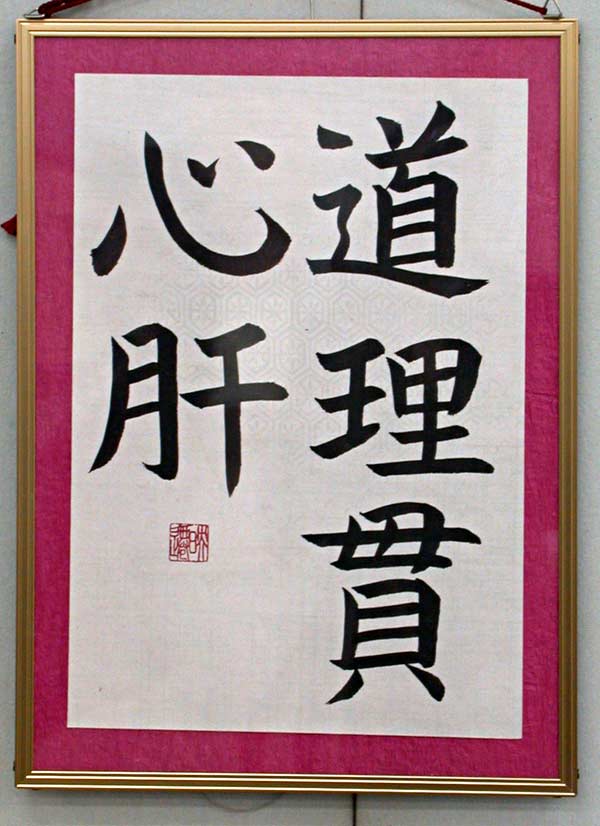 道理貫
心肝